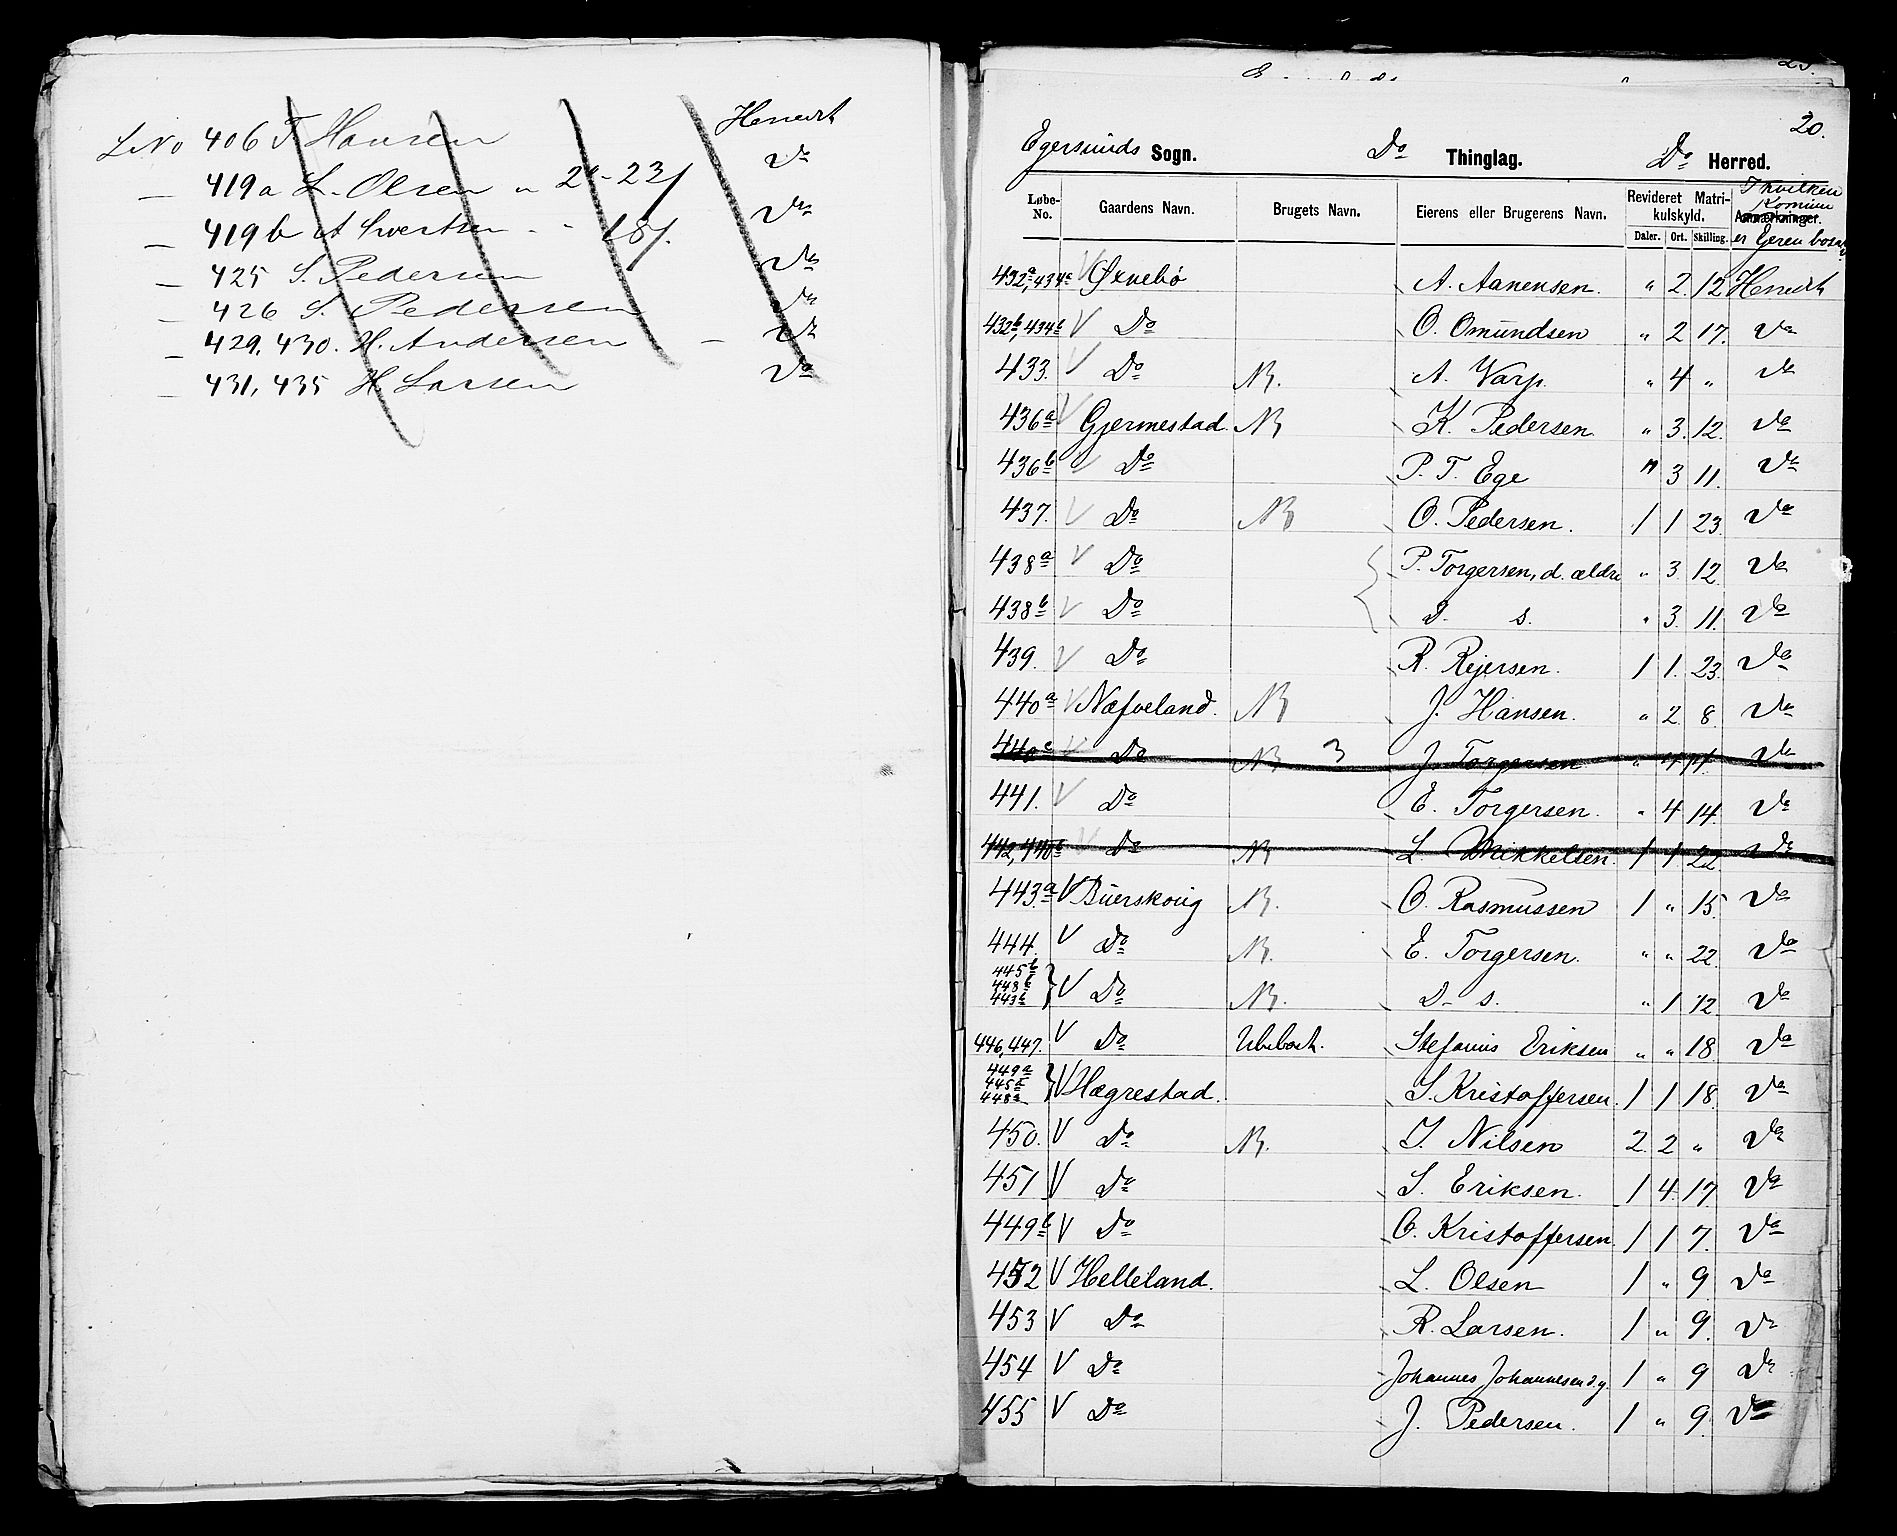 L No 406 T. Hansen Heredt
— 419a L. Olsen „ 2-23/ Do
— 419b A Sivertsen „ „ 18/. Do
— 425 S. Pedersen Do
— 426 S. Pedersen Do
— 429, 430. H. Andersen — Do
— 431, 435 H Larsen Do
20.
Egersunds Sogn. Do Thinglag. Do Herred.
Løbe-No. Gaardens Navn. Brugets Navn. Eierens eller Brugerens Navn. Revideret Matrikulskyld. Anmærkninger.
I hvilken Komune er Eieren bosat
Daler. Ort. Skilling.
432a, 434a V Ørnebø A. Aanensen. „ 2. 12 Heredt
432b, 434b V Do O. Omundsen „ 2 17. Do
433. V Do NB. A. Varp. „ 4 „ Do
436a V Gjermestad NB K. Pedersen „ 3. 12. Do
436b V Do P. T. Ege „ 3 11. Do
437. V Do NB O. Pedersen. 1 1 23. Do
438a V Do P. Torgersen, d. ældre „ 3. 12. Do
438b V Do D. s. „ 3. 11. Do
439. V Do R. Rejersen. 1 1. 23. Do
440a V Næfveland. NB J. Hansen. „ 2 8. Do
440c V Do NB 3 J. Torgersen „ 4 14. Do
441. V Do E. Torgersen. „ 4 14. Do
442, 440b V Do NB L. Mikkelsen. 1 1 22 Do
443a V Buerskoug NB. O. Rasmussen 1 „ 15. Do
444. V Do NB. E. Torgersen. „ „ 22. Do
445b 448b 443b } V Do NB. D- s. „ 1 12 Do
446, 447. V Do Stefanus Eriksen „ „ 18 Do
449a 445a 448a } V Hægrestad. S. Kristoffersen. 1 1 18. Do
450. V Do NB. T. Nilsen 2. 2 „ Do
451 V Do S. Eriksen. 1 4. 17. Do
449b V Do O. Kristoffersen. 1 1 7. Do
452 V Helleland. L. Olsen 1 „ 9. Do
453 V Do R. Larsen. 1 „ 9. Do
454 V Do Johannes Johannesen d.y. 1 „ 9 Do
455 V Do J. Pedersen. 1 „ 9. Do